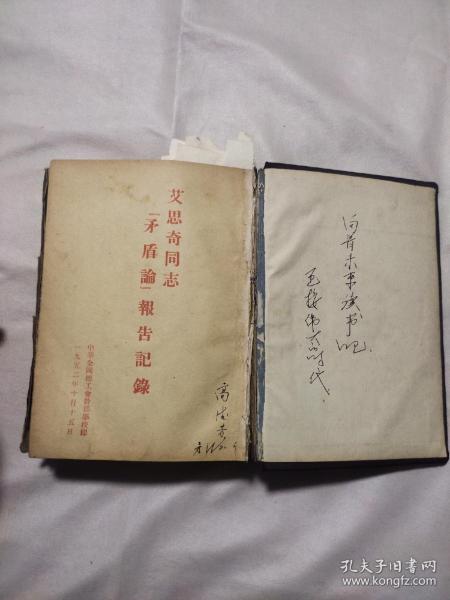 艾思奇同志
「矛盾論」報告記錄
中華全國總工會幹部學校印
一九五二年十月十五日
向着未来读书吧
迎接伟大的时代.
孔夫子旧书网
www.kongfz.com